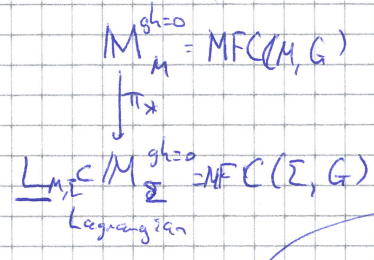 M_M^{gh=0} = MFC(M, G)
↓ π_*
L_{M,Σ} ⊂ M_Σ^{gh=0} = MFC(Σ, G)
Lagrangian